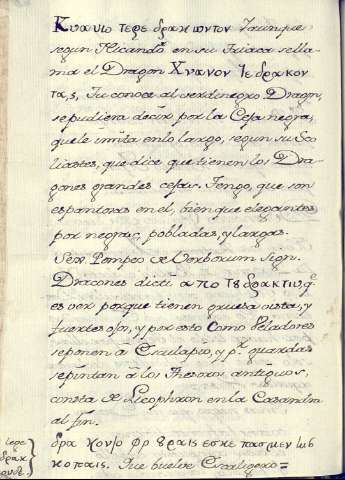 Κυανιο τερε δρακιοντον Jaunque
segun Nicandro en su Triaca se lla-
ma el Dragon Χνανον Ιε δρακον
τα,ς, Tu conoce al verdinegro Dragon,
se pudiera decir por la Ceja negra,
que le imita en lo largo, segun su Sco
liastes, que dice que tienen los Dra-
gones grandes cejas. Tengo, que son
espantosas en el, bien que elegantes
por negras, pobladas, y largas.
Sex. Pompeo de Verborum Sign.
Dracones dicti απο τ8 δρακτιν q.e
es ver porque tienen gruesa vista, y
fuertes ojos, y por esto como Veladores
se ponen â Esculapio, y p.r guardas
se pintan â los Thesoros antiguos,
consta de Licophron en la Casandra
al fin.
δρα κον/ο φρ 8ραις εσκε πασμεν
κοπαις. Que buelve Escaligero =
τερε
δρακ